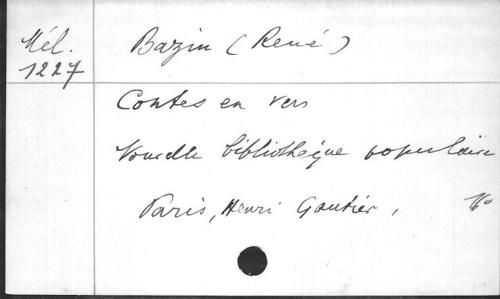 Mél.
1227
Bazin (René)
Contes en vers
Nouvelle bibliothèque populaire
Paris, Henri Gautier,